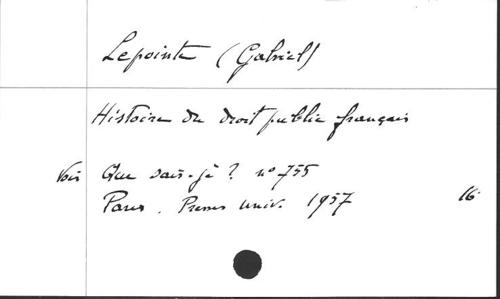 Lepointe (Gabriel)
Histoire du droit public français
Voir Que sais-je ? nº 755
Paris. Presses Univ. 1957 16